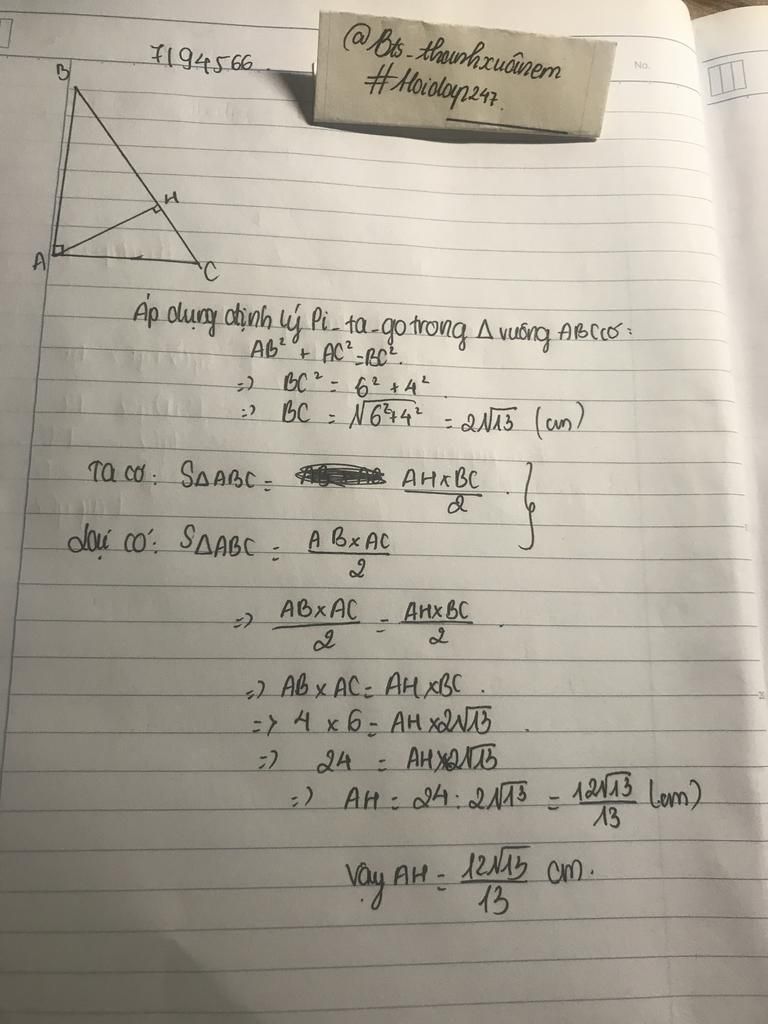 7194566
@Bts_thanhxuânem
#Hoidap247.
No.
B
H
A
C
Áp dụng định lý Pi_ta_go trong Δ vuông ABC có:
AB² + AC² = BC².
=> BC² = 6² + 4²
=> BC = √6²+4² = 2√13 (cm)
Ta có: SΔABC = AH x BC / 2
Lại có: SΔABC = AB x AC / 2
=> AB x AC / 2 = AH x BC / 2
=> AB x AC = AH x BC.
=> 4 x 6 = AH x 2√13
=> 24 = AH x 2√13
=> AH = 24 : 2√13 = 12√13 / 13 (cm)
Vậy AH = 12√13 / 13 cm.